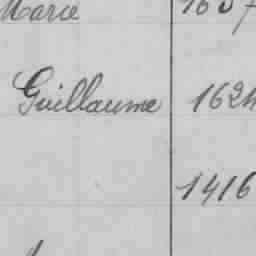 Marie
Guillaume 1624
1416